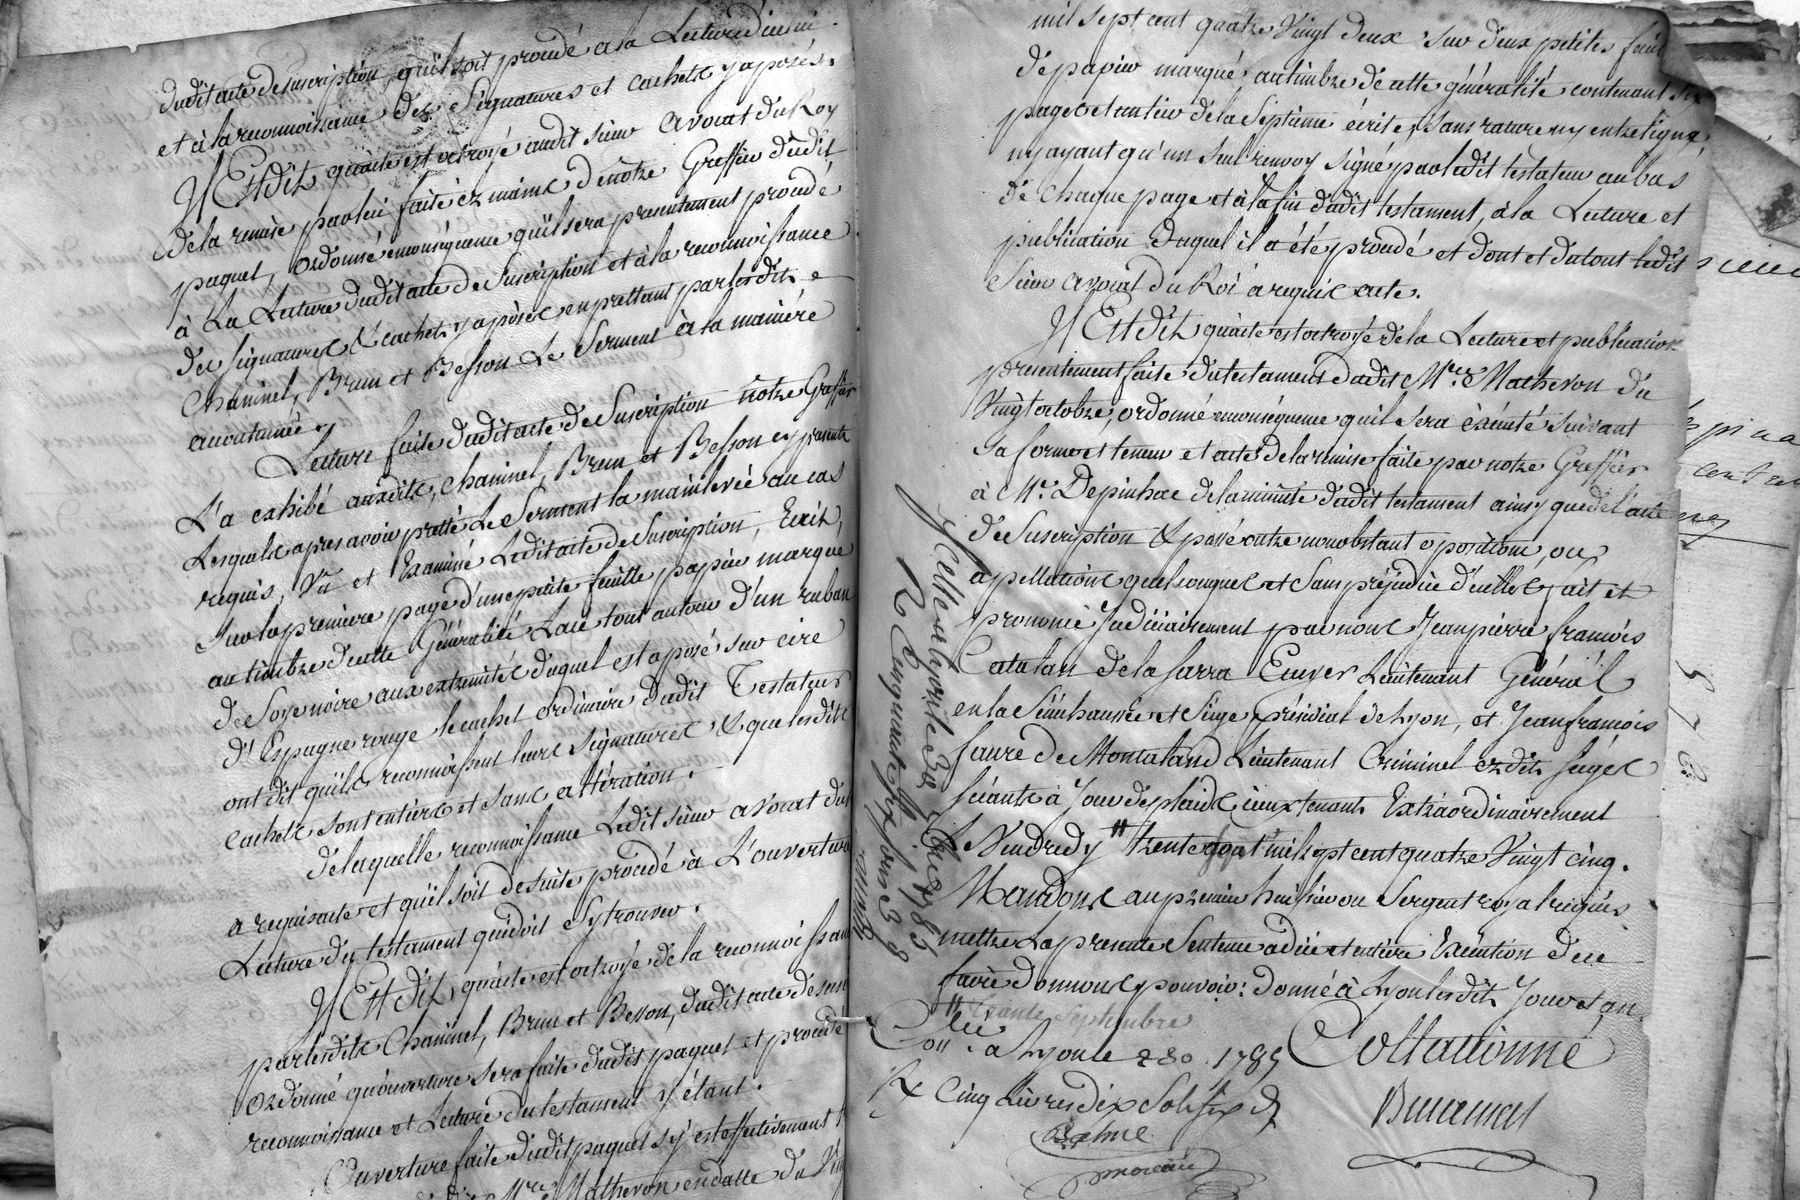 dudit acte de suscription, qu'il soit procédé a la Lecture d'icelui
et à la reconnoissance des Signatures et cachets y aposés.
Il Est dit qu'acte est octroyé audit sieur Avocat du Roy
de la remise par lui faite ez mains de notre Greffier dudit
paquet, ordonné en conséquence qu'il sera presentement procédé
à La Lecture dudit acte de Suscription et à la reconnoissance
des signatures & cachets y aposés en prettant par lesdits
Chaminel, Brun et Besson Le Serment à la manière
accoutumée.
Lecture faite dudit acte de Suscription notre Greffier
L'a exhibé auxdits, Chaminel, Brun et Besson cy presents
Lesquels apres avoir pretté Le Serment la main levée au cas
requis, Vû et Examiné Ledit acte de Suscription, Ecrit,
sur la premiere page d'une petite feuille papier marqué
au timbre de cette Généralité Lacé tout autour d'un ruban
de Soye noire aux extremités duquel est aposé sur cire
d'Espagne rouge le cachet ordinaire dudit Testateur
ont dit qu'ils reconnoissent leurs signatures & que lesdits
cachets sont entiers et sans altération.
de laquelle reconnoissance Ledit sieur avocat du
a requis acte et qu'il soit de suite procédé à L'ouverture
Lecture du testament qui doit s'y trouver.
Il Est dit qu'acte est octroyé de la reconnoissance
par lesdits Chaminel, Brun et Besson, dudit acte de
ordonné qu'ouverture sera faite dudit paquet et procédé
reconnoissance et Lecture du testament y étant.
Ouverture faite dudit paquet s'y est effectivement
Mre Matheron en datte du
mil sept cent quatre Vingt deux sur deux petites
de papier marqué au timbre de cette généralité contenant six
pages et un tier de la Septieme écrite, sans rature ny entreligne,
ny ayant qu'un seul renvoy signé par ledit testateur au bas
de chaque page et à la fin dudit testament, à la Lecture et
publication duquel il a été procédé et dont et du tout ledit
Sieur avocat du Roi a requis acte.
Il Est dit qu'acte est octroyé de la Lecture et publication
presentement faite du testament dudit Mre Matheron du
Vingt octobre, ordonné en conséquence qu'il sera exécuté suivant
sa forme et teneur et acte de la remise faite par notre Greffier
à Me. Depinhac de la minute dudit testament ainsy que de l'acte
de Suscription & passé outre nonobstant oposition, ou
apellations quelconques et sans préjudice d'icelles, fait et
prononcé Judiciairement par nous Jean pierre françois
Catalan de la Sarra Ecuyer Lieutenant Général
en la Sénéchaussée et Siege présidial de Lyon, et Jean françois
faure de Montaland Lieutenant Criminel ezdits sieges
séants à Jour de plaids iceux tenants Extraordinairement
Le Vendredy trente mil sept cent quatre Vingt cinq.
Mandons au premier huissier ou Sergent royal requis
mettre La presente Sentence à due et entière Execution de ce
faire donnons pouvoir: donné à Lyon lesdits Jour et an
trente Septembre
Collationné
à Lyon le 1785
Rx Cinq Livres dix Sols six d